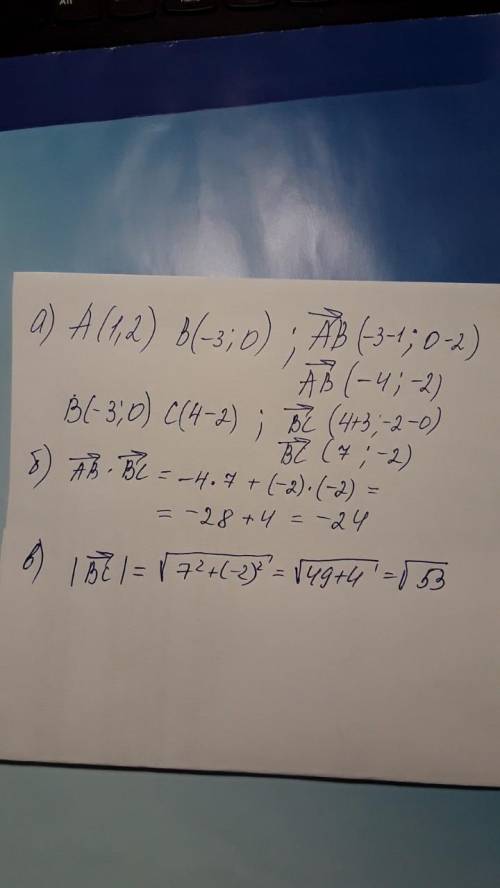 а) A(1,2) B(-3;0) ; \overrightarrow{AB} (-3-1; 0-2)
\overrightarrow{AB} (-4; -2)
B(-3;0) C(4-2) ; \overrightarrow{BC} (4+3; -2-0)
\overrightarrow{BC} (7 ; -2)
б) \overrightarrow{AB} · \overrightarrow{BC} = -4·7 + (-2)·(-2) =
= -28 + 4 = -24
в) |\overrightarrow{BC}| = √(7²+(-2)²) = √(49+4) = √53